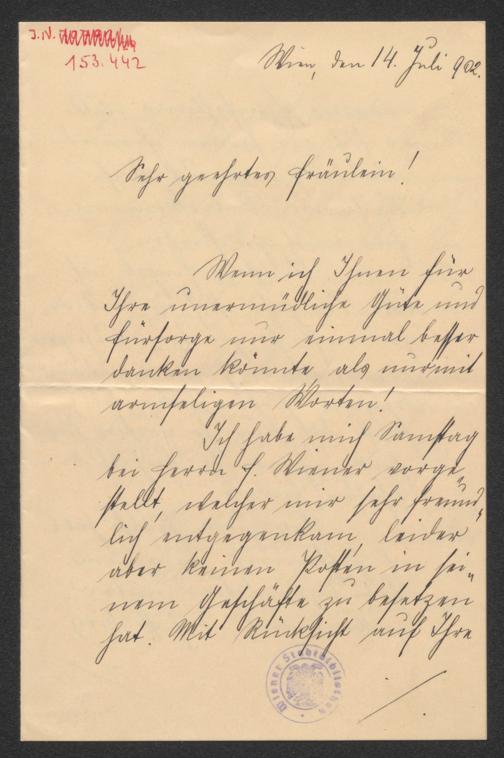 J.N.
153.442
Wien, den 14. Juli 902.
Sehr geehrtes Fräulein!
Wenn ich Ihnen für
Ihre unermüdliche Güte und
Fürsorge nur einmal besser
danken könnte als nur mit
armseligen Worten!
Ich habe mich Samstag
bei Herrn F. Wiener vorge„
stellt, welcher mir sehr freund„
lich entgegenkam, leider
aber keinen Posten in sei„
nem Geschäfte zu besetzen
hat. Mit Rücksicht auf Ihre
Wiener Stadtbibliothek